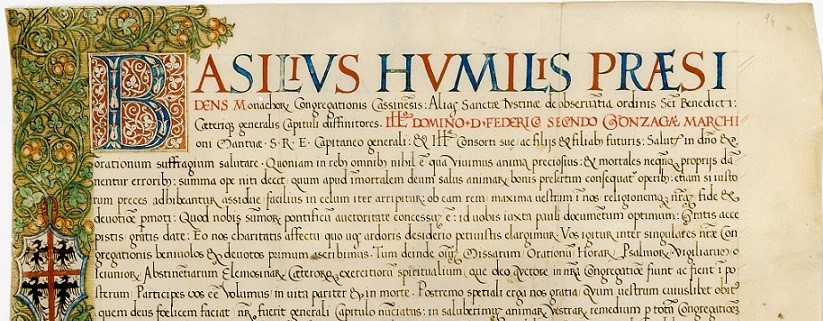 BASILIVS HVMILIS PRÆSI
DENS Monachor Congregationis Cassinẽsis: Aliaȿ Sanctæ Iustinæ de obseruãtia ordinis Scti Benedicti:
Cæteriq generalis Capituli diffinitores. Illo DOMINO·D·FEDERICO SECVNDO GONZAGÆ MARCHI
oni Mantuæ·S·R·E·Capitaneo generali: & Consorti suæ ac filijs & filiab futuris: Salutẽ in dno &
orationum suffragium salutare. Quoniam in reb omnib nihil ẽ qua viuimus anima preciosius: & mortales proprijs dã
nentur errorib: summa ope niti decet quum apud imortalem deum salus animaȿ bonis presertim consequat operib: etiam si iusto
rum preces adhibeantur assidue facilius in celum iter arripitur: ob eam rem maxima uestrum ĩ nos religionemq nrãȝ fide &
deuotiõe pmoti: Quod nobis sumoȿ pontificũ auctoritate concessuȝ ẽ: id uobis iuxta pauli documetum optimum: Gratis acce
pistis gratis date: Eo nos charitatis affectu quo uos ardoris desiderio petiuistis elargimur. Vos igitur inter singulares nræ Con
gregationis beniuolos & deuotos primum ascribimus. Tum deinde Missarum Orationũ Horaȿ Psalmoȿ Vigiliarũ
Ieiunioȿ Abstinẽtiarum Elemosinaȿ Cæteroȿ exercitiorũ spiritualium que deo auctore in nrã Congregatiõe fiunt ac fient ĩ po
sterum Participes uos eẽ Volumus in uita pariter & in morte. Postremo spetiali ergo nos gratia Quum uestrum cuiuslibet obit
quem deus fœlicem faciat nr fuerit generali Capitulo nũciatus: in saluberrimũ animaȿ vestraȿ remedium p totã Congregatiõẽ